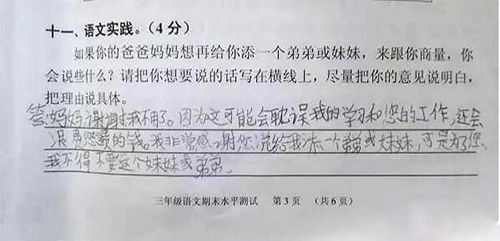 十一、语文实践。（4 分）
如果你的爸爸妈妈想再给你添一个弟弟或妹妹，来跟你商量，你
会说些什么？请把你想要说的话写在横线上，尽量把你的意见说明白，
把理由说具体。
答妈妈谢谢我不用了。因为这可能会耽误我的学习和您的工作，还会
浪费您的钱。我非常感谢您说给我添一个弟弟或妹妹，可是为了您，
我不得不要这个妹妹或弟弟。
三年级语文期末水平测试 第 3 页 （共 6 页）